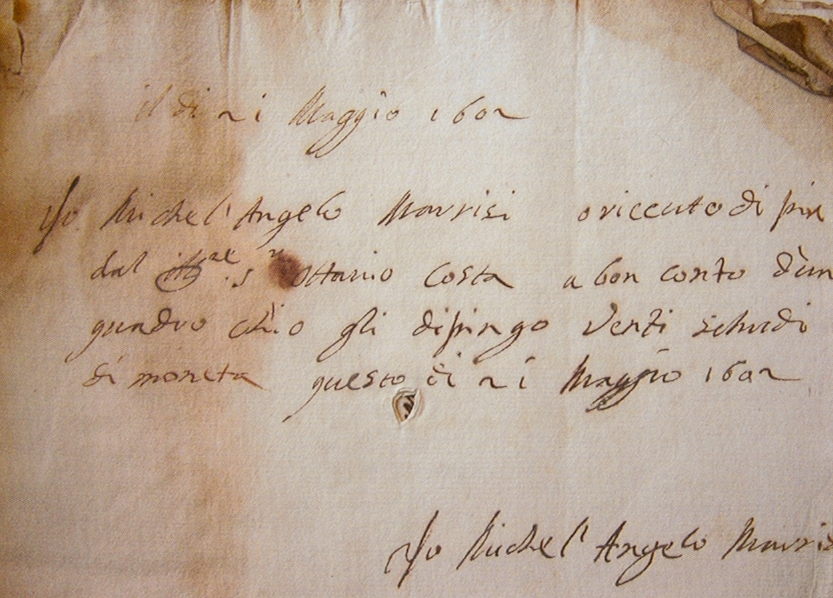 il di 21 Maggio 1602
Io Michel'Angelo Marrisi o riccuto di più
dal Ill.re S.r Ottavio Costa a bon conto d'un
quadro ch'io gli dipingo venti schudi
di moneta questo di 21 Maggio 1602
Io Michel'Angelo Marris